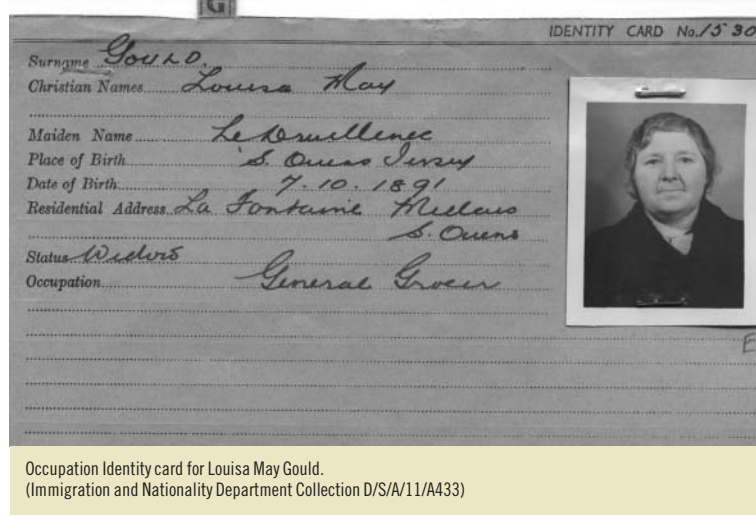 G
IDENTITY CARD No. 1530
Surname Gould.
Christian Names Louisa May
Maiden Name Le Druillenec
Place of Birth S. Ouens Jersey
Date of Birth 7.10.1891
Residential Address La Fontaine Millais
S. Ouens
Status Widow
Occupation General Grocer
E
Occupation Identity card for Louisa May Gould.
(Immigration and Nationality Department Collection D/S/A/11/A433)